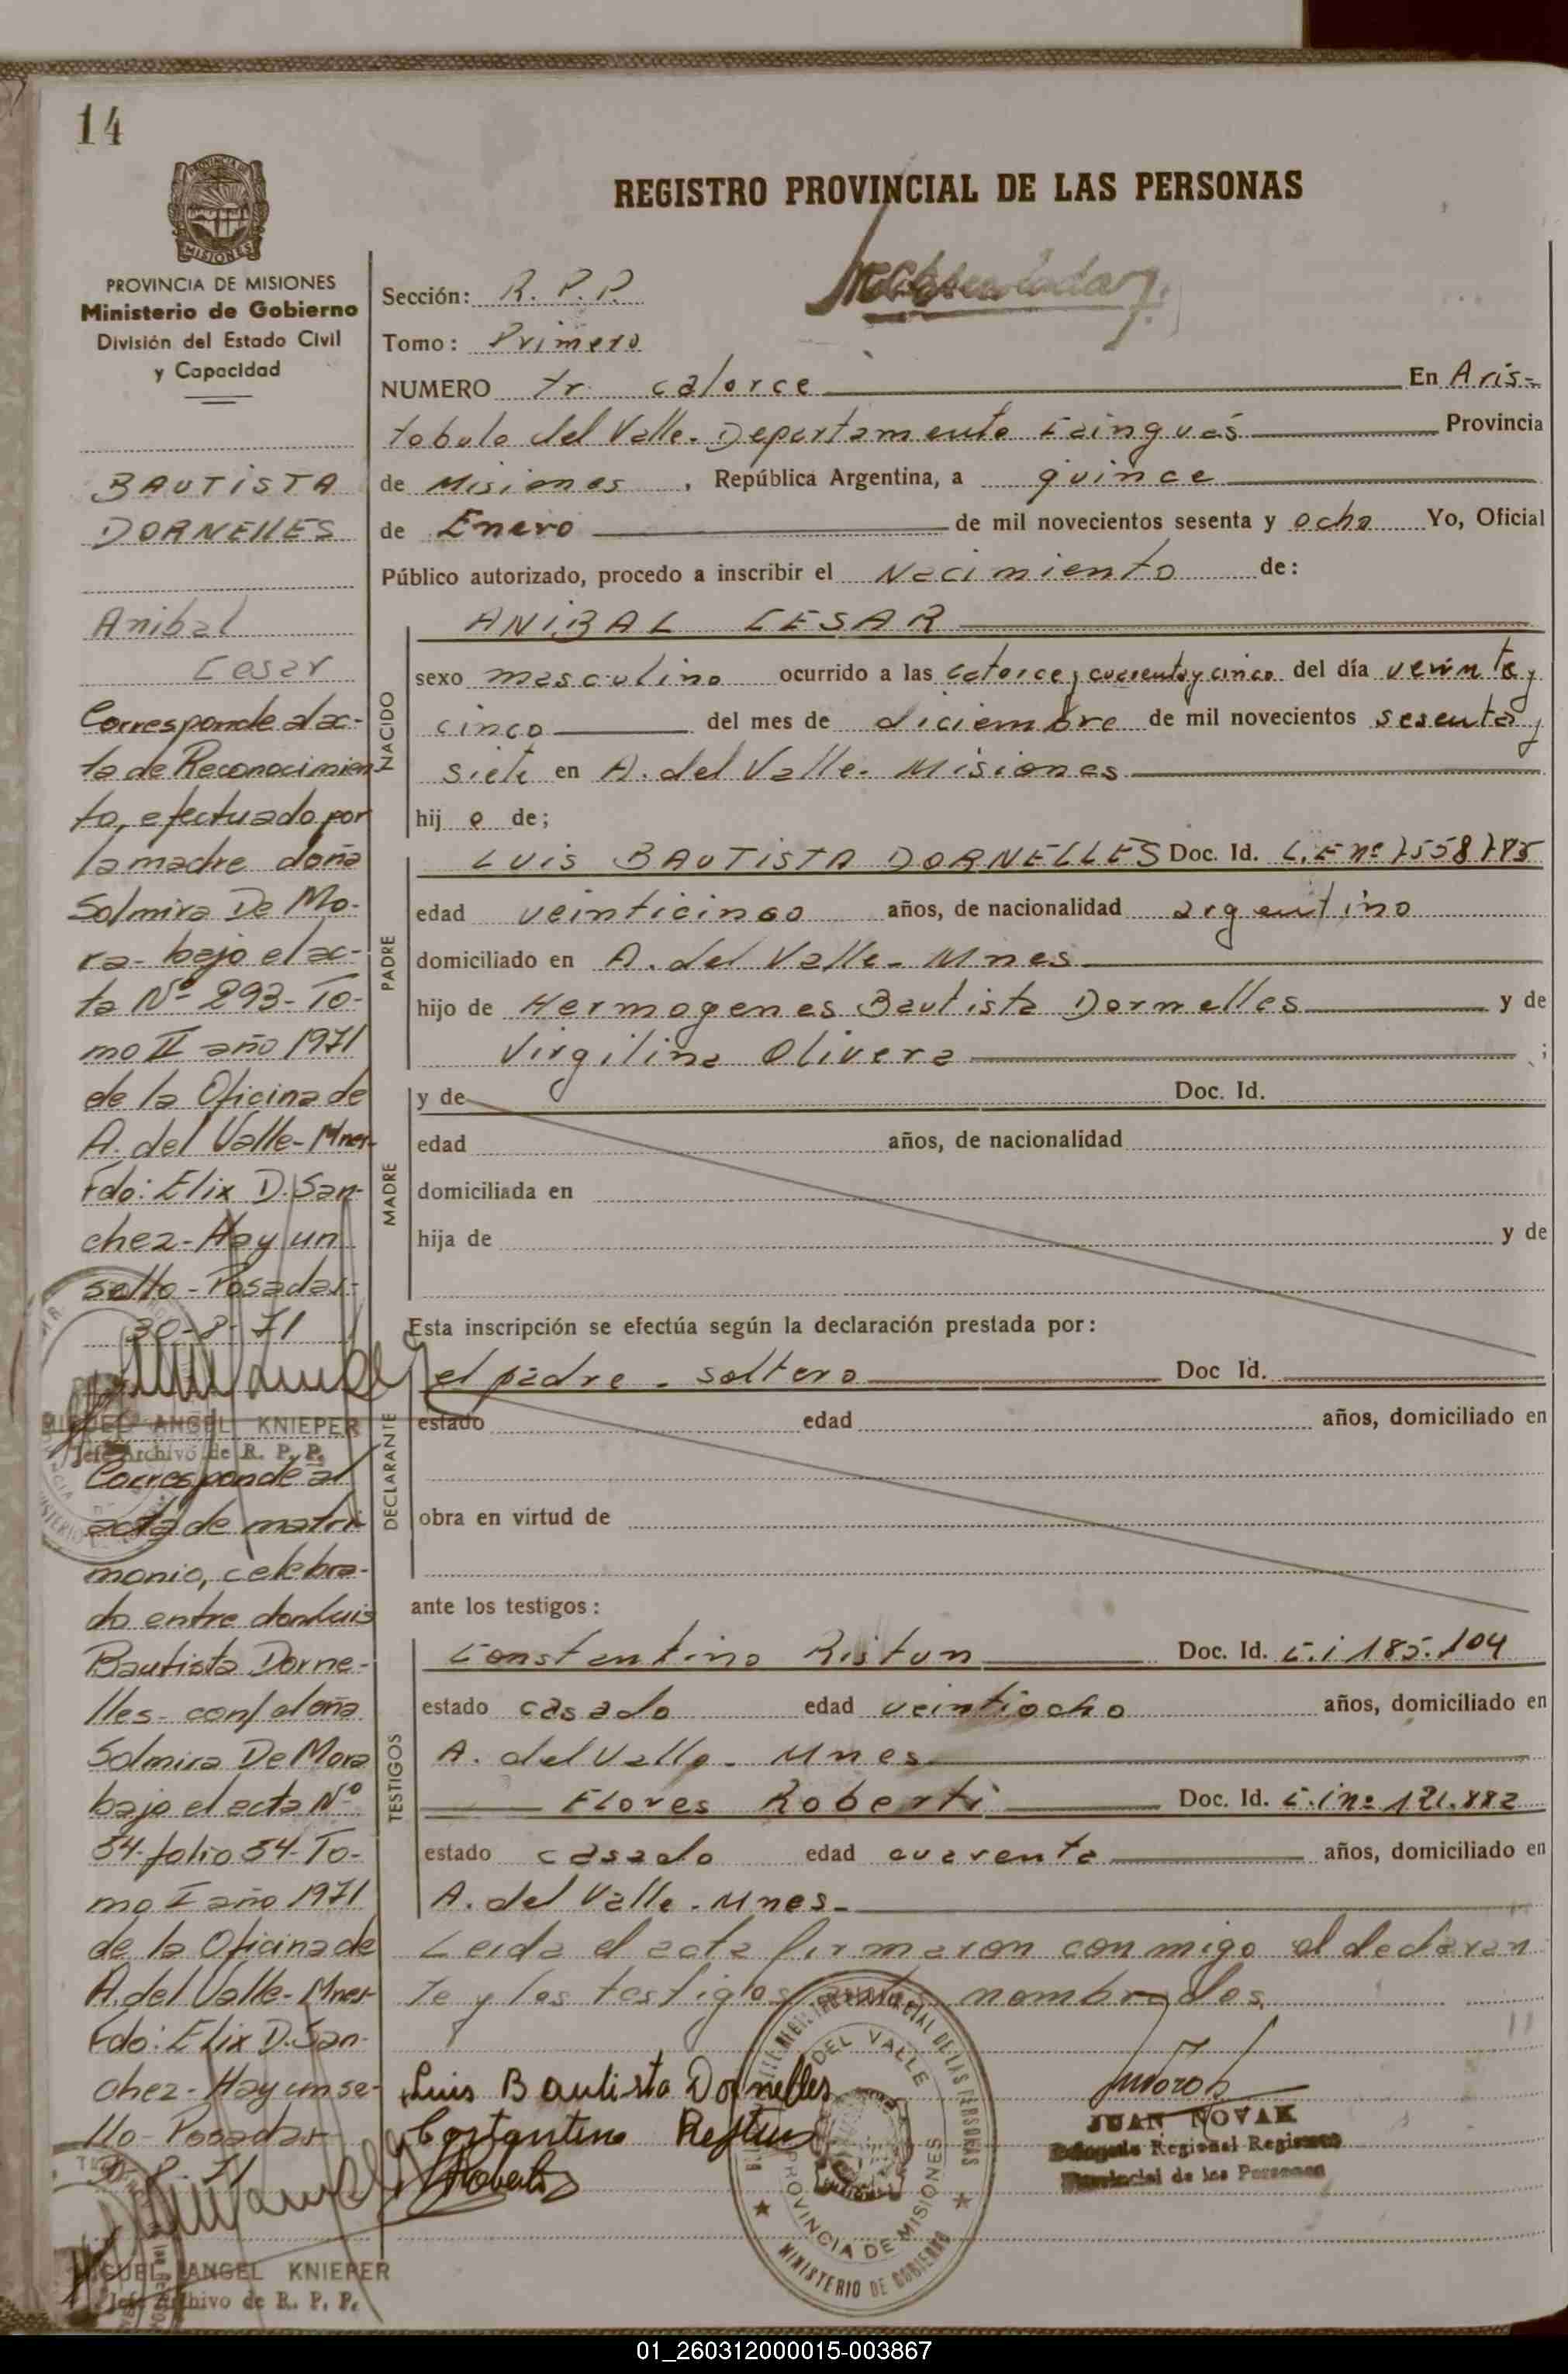 14
PROVINCIA DE MISIONES
Ministerio de Gobierno
División del Estado Civil
y Capacidad
BAUTISTA
DORNELLES
Anibal
Cesar
Corresponde al ac-
ta de Reconocimien
to, efectuado por
la madre doña
Solmira De Mo-
ra- bajo el ac-
ta Nº 293- To-
mo II año 1971
de la Oficina de
A. del Valle- Mnes-
Fdo: Elix D. San-
chez- Hay un
sello- Posadas-
30-8-71
MIGUEL ANGEL KNIEPER
Jefe Archivo de R. P. P.
Corresponde al
acta de matri-
monio, celebra-
do entre don Luis
Bautista Dorne-
lles- con/ doña
Solmira De Mora
bajo el acta Nº
54- folio 54- To-
mo I año 1971
de la Oficina de
A. del Valle- Mnes-
Fdo: Elix D. San-
chez- Hay un se-
llo- Posadas-
8-71
MIGUEL ANGEL KNIEPER
Jefe Archivo de R. P. P.
REGISTRO PROVINCIAL DE LAS PERSONAS
Sección: R. P. P.
Tomo: Primero
NUMERO catorce En Aris-
tobulo del Valle- Departamento Cainguás Provincia
de Misiones, República Argentina, a quince
de Enero de mil novecientos sesenta y ocho Yo, Oficial
Público autorizado, procedo a inscribir el Nacimiento de:
NACIDO
ANIBAL CESAR
sexo masculino ocurrido a las catorce y cuarenta y cinco del día veinte y
cinco del mes de diciembre de mil novecientos sesenta y
siete en A. del Valle- Misiones
hijo de;
PADRE
LUIS BAUTISTA DORNELLES Doc. Id. L.E nº 7558785
edad veinticinco años, de nacionalidad argentino
domiciliado en A. del Valle- Mnes
hijo de Hermogenes Bautista Dornelles y de
Virgilina Olivera ;
MADRE
y de Doc. Id.
edad años, de nacionalidad
domiciliada en
hija de y de
Esta inscripción se efectúa según la declaración prestada por:
DECLARANTE
el padre- soltero Doc Id.
estado edad años, domiciliado en
obra en virtud de
ante los testigos:
TESTIGOS
Constantino Ristun Doc. Id. C.i 185.104
estado casado edad veintiocho años, domiciliado en
A. del Valle- Mnes
Flores Roberti Doc. Id. C.i nº 121.882
estado casado edad cuarenta años, domiciliado en
A. del Valle- Mnes-
Leida el acta firmaron conmigo el declaran
te y los testigos nombrados
Luis Bautista Dornelles
Costantino Ristun
Roberti
DEL VALLE
PROVINCIA DE MISIONES
MINISTERIO DE GOBIERNO
JUAN NOVAK
Delegado Regional Registro
Provincial de las Personas
01_260312000015-003867